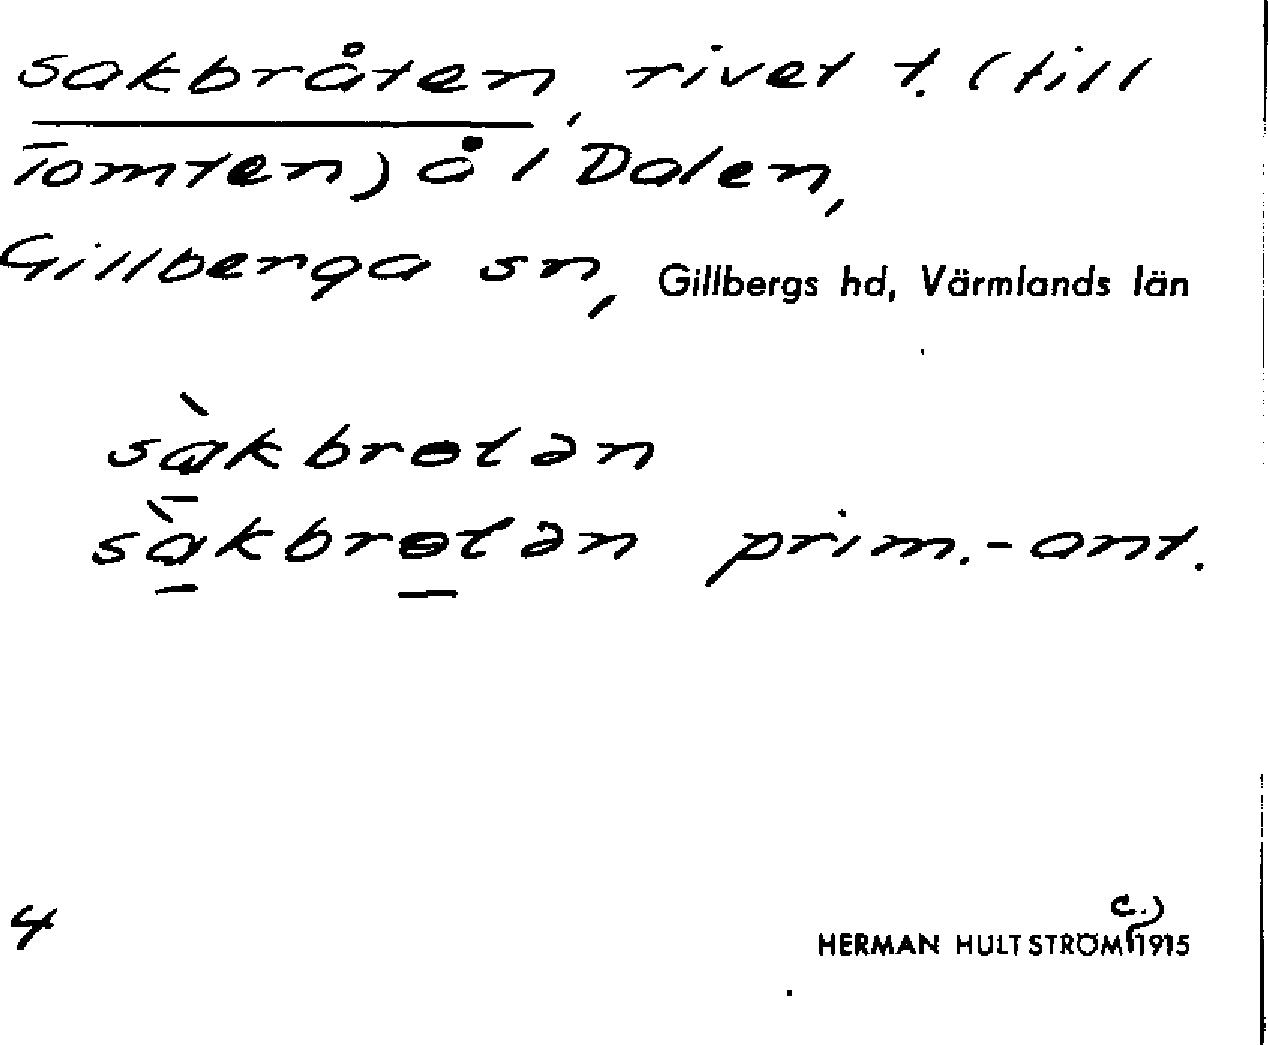 sakbråten, rivet t. (till
Tomten) å 1 Dalen,
Gillberga sn, Gillbergs hd, Värmlands län
sàkbrɵtən
sàkbrɵtən prim.-ant.
4
HERMAN HULTSTRÖM c.) 1915